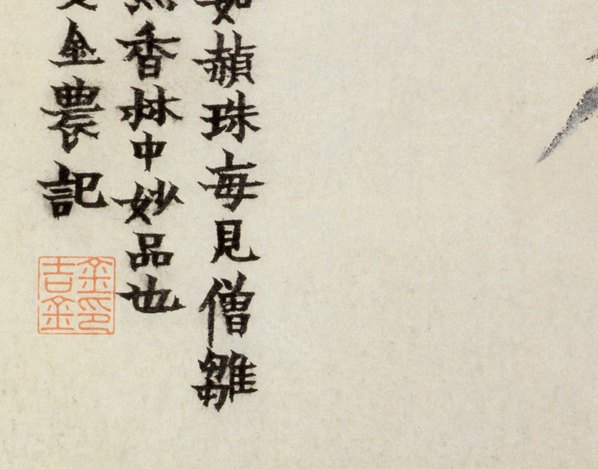 赬珠每見僧雛
香林中妙品也
金農記
金吉金印